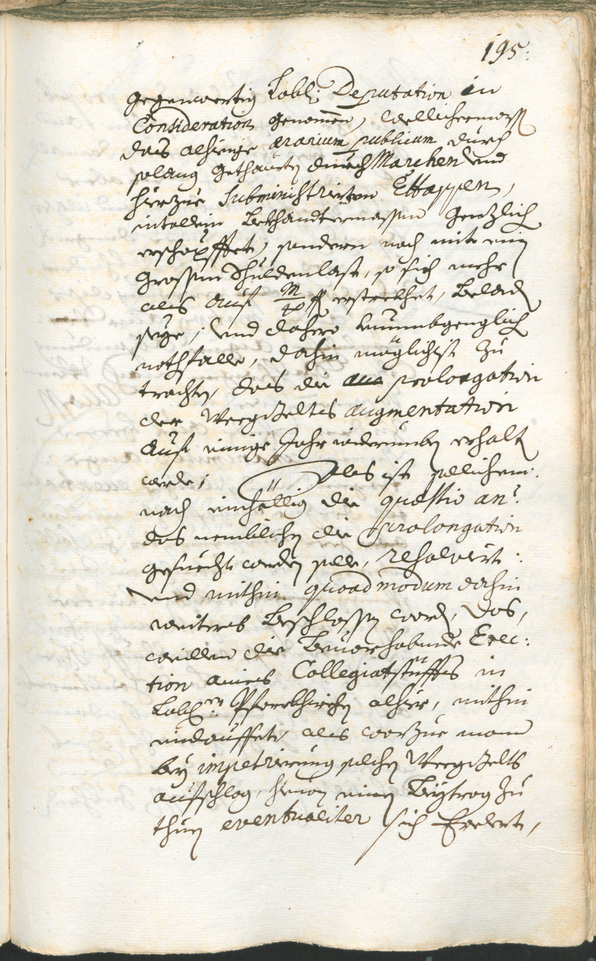 195.
gegenwertig Lobl: Deputation in
Consideration genomen, wellichermass
das alhiesige aerarium publicum durch
solang gethaurte durch Marchen und
hierzue subministrierten Ettappen,
nit allein bekhandtermassen gentzlich
erschöpffet, sondern noch mit einem
grossen Schuldenlast, so sich mehr
als auf 40 m/ fl erstrekhet, beladen
seye, und dahero unumbgenglich
nothfalle, dahin möglichist zu
trachten, das die prolongation
der Weegzelts augmentation
auf einige Jahr widerumben erhalten
werde; Als ist solichem
nach einhöllig die quaestio an?
das nemblichen die prolongation
gesuecht werden solle, resolviert:
und mithin quoad modum dahin
weiters beschlossen worden, das,
weillen die bevorhabende Erec-
tion aines Collegiatstüffts in
Lobl: Pfarrkhirchen alhier, mithin
einlauffet, als worzue man
bey impetrierung solchen Weegzelts
aufschlag, hievon einen Beytrag zu
thuen eventualiter sich erklert,